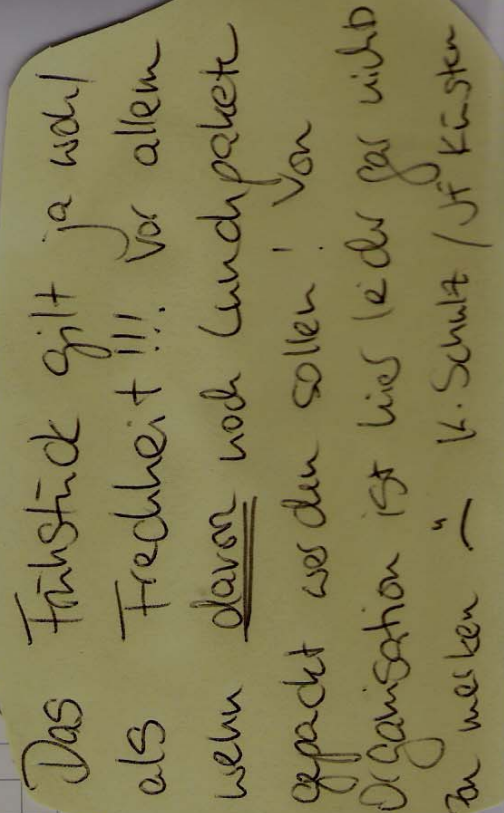 Das Frühstück gilt ja wohl
als Frechheit!!! Vor allem
wenn davon noch Lunchpakete
gepackt werden sollen! Von
Organisation ist hier leider gar nichts
zu merken K. Schulz / JF Künsten